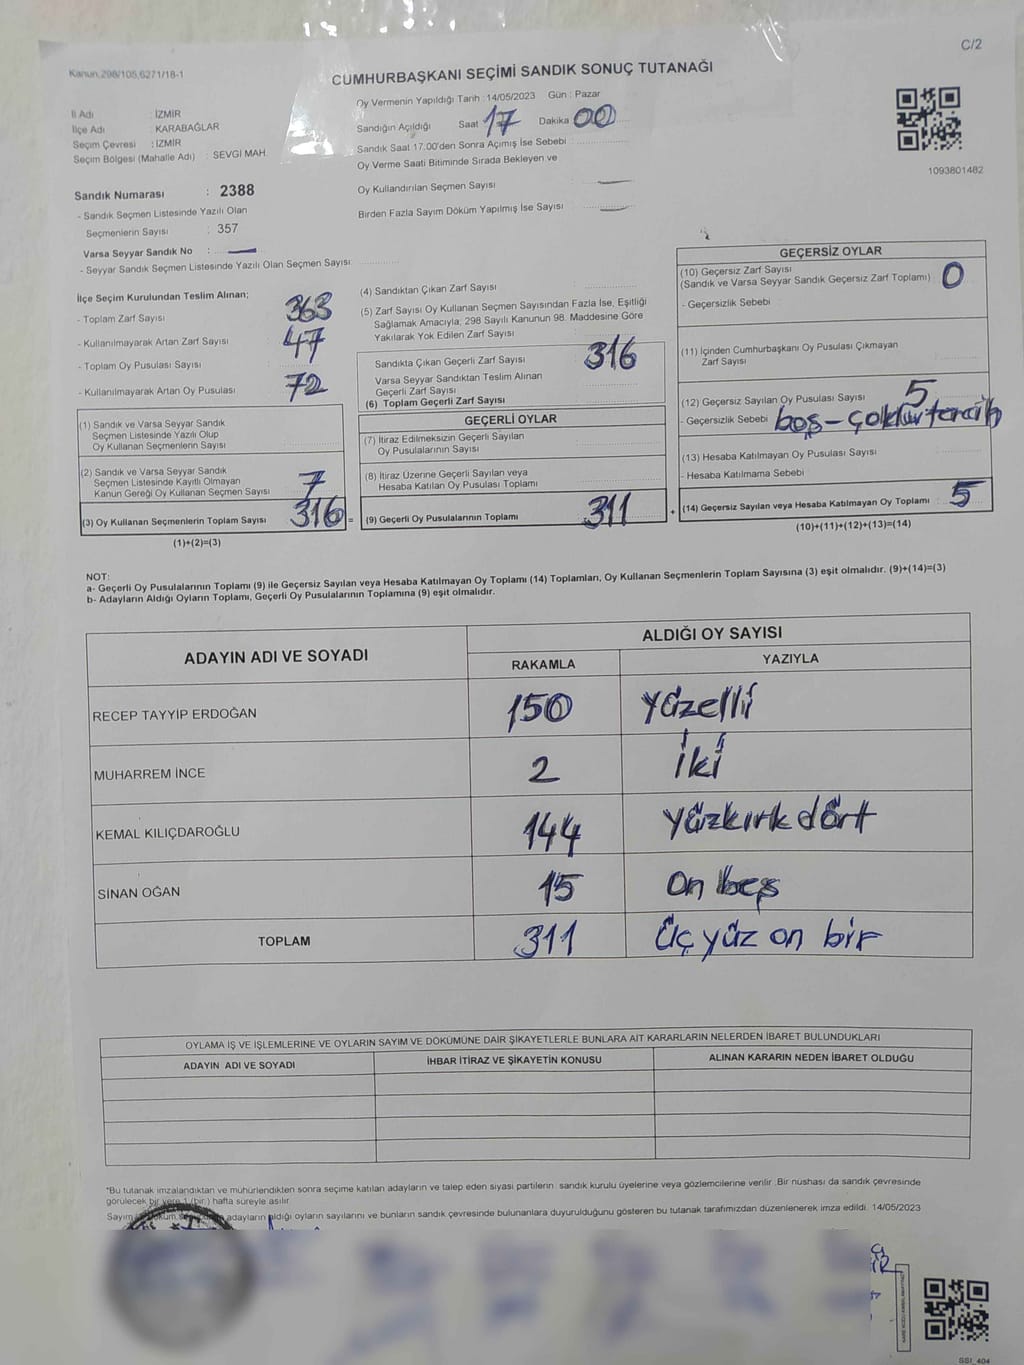 C/2
Kanun,298/105,6271/18-1
CUMHURBAŞKANI SEÇİMİ SANDIK SONUÇ TUTANAĞI
İl Adı : İZMİR
İlçe Adı : KARABAĞLAR
Seçim Çevresi : İZMİR
Seçim Bölgesi (Mahalle Adı) : SEVGİ MAH.
Sandık Numarası : 2388
- Sandık Seçmen Listesinde Yazılı Olan
Seçmenlerin Sayısı : 357
Varsa Seyyar Sandık No :
- Seyyar Sandık Seçmen Listesinde Yazılı Olan Seçmen Sayısı:
Oy Vermenin Yapıldığı Tarih :14/05/2023 Gün : Pazar
Sandığın Açıldığı Saat 17 Dakika 00
Sandık Saat 17.00'den Sonra Açımış İse Sebebi :
Oy Verme Saati Bitiminde Sırada Bekleyen ve
Oy Kullandırılan Seçmen Sayısı
Birden Fazla Sayım Döküm Yapılmış İse Sayısı
1093801482
İlçe Seçim Kurulundan Teslim Alınan;
- Toplam Zarf Sayısı 363
- Kullanılmayarak Artan Zarf Sayısı 47
- Toplam Oy Pusulası Sayısı
- Kullanılmayarak Artan Oy Pusulası 72
(1) Sandık ve Varsa Seyyar Sandık
Seçmen Listesinde Yazılı Olup
Oy Kullanan Seçmenlerin Sayısı
(2) Sandık ve Varsa Seyyar Sandık
Seçmen Listesinde Kayıtlı Olmayan
Kanun Gereği Oy Kullanan Seçmen Sayısı 7
(3) Oy Kullanan Seçmenlerin Toplam Sayısı 316 =
(1)+(2)=(3)
(4) Sandıktan Çıkan Zarf Sayısı
(5) Zarf Sayısı Oy Kullanan Seçmen Sayısından Fazla İse, Eşitliği
Sağlamak Amacıyla; 298 Sayılı Kanunun 98. Maddesine Göre
Yakılarak Yok Edilen Zarf Sayısı
Sandıkta Çıkan Geçerli Zarf Sayısı 316
Varsa Seyyar Sandıktan Teslim Alınan
Geçerli Zarf Sayısı
(6) Toplam Geçerli Zarf Sayısı
GEÇERLİ OYLAR
(7) İtiraz Edilmeksizin Geçerli Sayılan
Oy Pusulasının Sayısı
(8) İtiraz Üzerine Geçerli Sayılan veya
Hesaba Katılan Oy Pusulası Toplamı
(9) Geçerli Oy Pusulalarının Toplamı 311 +
GEÇERSİZ OYLAR
(10) Geçersiz Zarf Sayısı
(Sandık ve Varsa Seyyar Sandık Geçersiz Zarf Toplamı) 0
- Geçersizlik Sebebi :
(11) İçinden Cumhurbaşkanı Oy Pusulası Çıkmayan
Zarf Sayısı
(12) Geçersiz Sayılan Oy Pusulası Sayısı 5
- Geçersizlik Sebebi boş-
(13) Hesaba Katılmayan Oy Pusulası Sayısı
- Hesaba Katılmama Sebebi :
(14) Geçersiz Sayılan veya Hesaba Katılmayan Oy Toplamı : 5
(10)+(11)+(12)+(13)=(14)
NOT:
a- Geçerli Oy Pusulalarının Toplamı (9) ile Geçersiz Sayılan veya Hesaba Katılmayan Oy Toplamı (14) Toplamları, Oy Kullanan Seçmenlerin Toplam Sayısına (3) eşit olmalıdır. (9)+(14)=(3)
b- Adayların Aldığı Oyların Toplamı, Geçerli Oy Pusulalarının Toplamına (9) eşit olmalıdır.
ADAYIN ADI VE SOYADI ALDIĞI OY SAYISI
RAKAMLA YAZIYLA
RECEP TAYYİP ERDOĞAN 150 Yüzelli
MUHARREM İNCE 2 İki
KEMAL KILIÇDAROĞLU 144 Yüzkırk dört
SİNAN OĞAN 15 On beş
TOPLAM 311 Üç yüz on bir
OYLAMA İŞ VE İŞLEMLERİNE VE OYLARIN SAYIM VE DÖKÜMÜNE DAİR ŞİKAYETLERLE BUNLARA AİT KARARLARIN NELERDEN İBARET BULUNDUKLARI
ADAYIN ADI VE SOYADI İHBAR İTİRAZ VE ŞİKAYETİN KONUSU ALINAN KARARIN NEDEN İBARET OLDUĞU
*Bu tutanak imzalandıktan ve mühürlendikten sonra seçime katılan adayların ve talep eden siyasi partilerin sandık kurulu üyelerine veya gözlemcilerine verilir. Bir nüshası da sandık çevresinde
görülecek bir yere 1 (bir) hafta süreyle asılır.
Sayım adayların aldığı oyların sayılarını ve bunların sandık çevresinde bulunanlara duyurulduğunu gösteren bu tutanak tarafımızdan düzenlenerek imza edildi. 14/05/2023
SSI_404